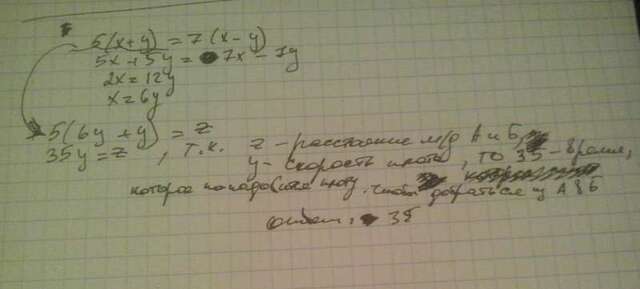 5(x+y) = 7(x-y)
5x+5y = 7x-7y
2x=12y
x=6y
5(6y+y) = z
35y=z, т.к. z - расстояние м/д А и Б,
y - скорость плота, то 35 - время,
которое понадобится плоту, чтобы добраться из А в Б
ответ: 35